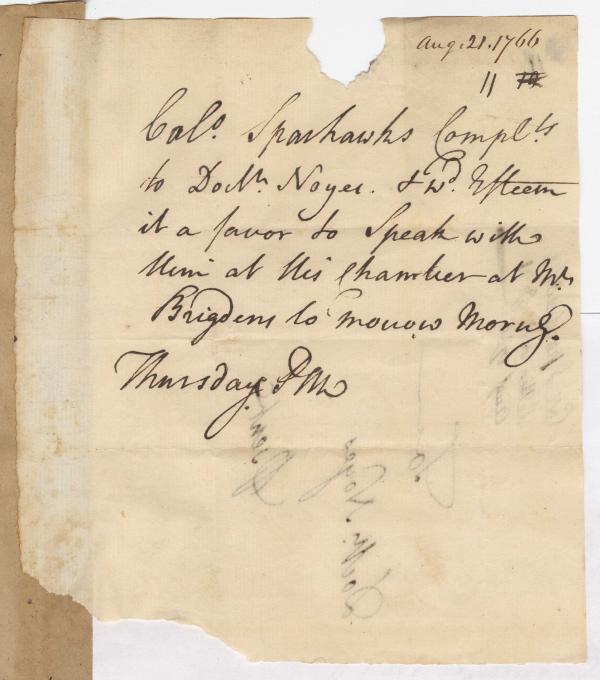 Aug. 21. 1766
11
Colo. Sparhawks Complts
to Doctr. Noyes. & wd. Esteem
it a favor to Speak with
Him at His Chamber at Mrs
Brigdens to morrow Morng.
Thursday PM